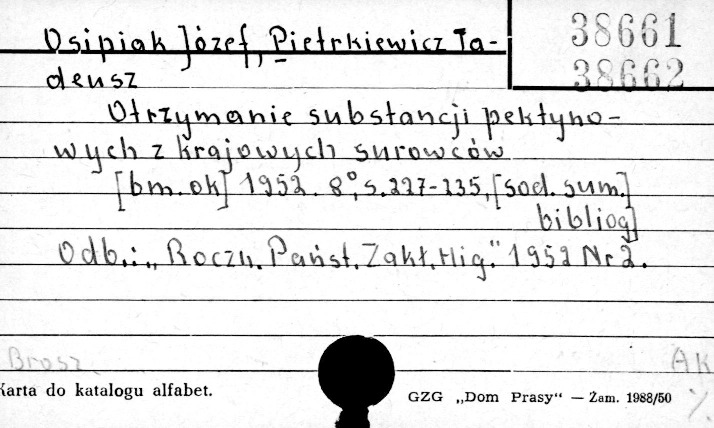 38661
38662
Osipiak Józef, Pietrkiewicz Ta-
deusz
Otrzymanie substancji pektyno-
wych z krajowych surowców
[bm. ok] 1952. 8°, s. 227-235, [sod. sum.]
bibliog]
Odb.: „Roczn. Państ. Zakł. Hig." 1952 Nr 2.
Brosz.
AK
Karta do katalogu alfabet.
GZG „Dom Prasy“ — Zam. 1988/50